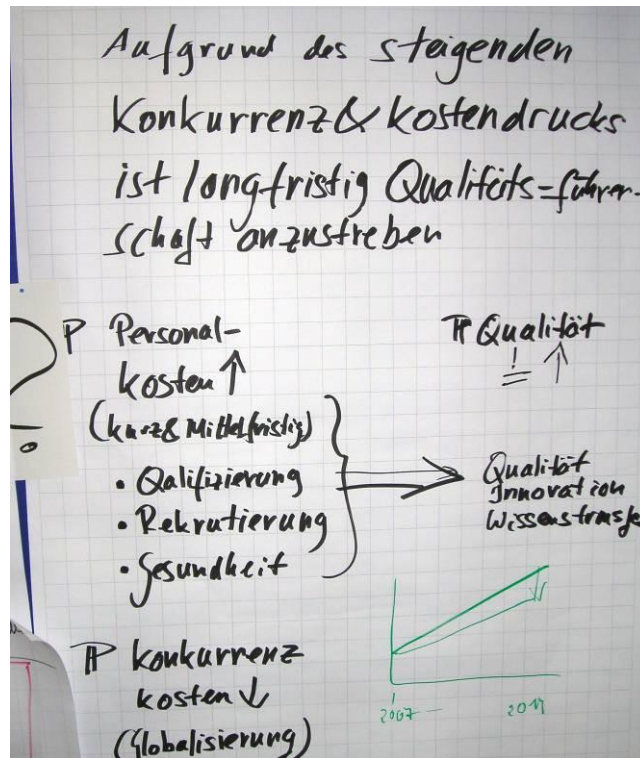 Aufgrund des steigenden
Konkurrenz & Kostendrucks
ist langfristig Qualitäts=führer-
schaft anzustreben
P Personal-
kosten ↑
(kurz & Mittelfristig)
• Qalifizierung
• Rekrutierung
• Gesundheit
P Qualität
! ↑
Qualität
Innovation
Wissenstransfe
P Konkurrenz
kosten ↓
(Globalisierung)
2007
?